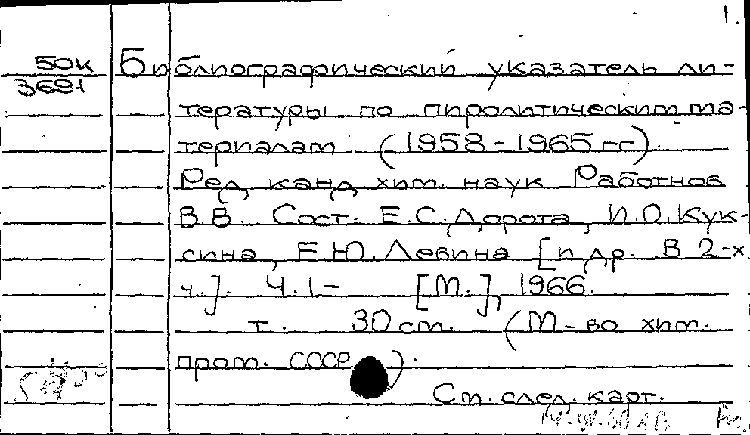 1.
50к Библиографический указатель ли-
3691
тературы по пиролитическим ма-
териалам (1958-1965 гг).
Ред. канд. хим. наук Работнов
В.В. Сост. Е.С. Дорота, И.О. Кук-
сина, Е.Ю. Левина [и др. В 2-х
ч.]. Ч.1- [М.], 1966.
т. 30 см. (М-во хим.
пром. СССР).
См. след. карт.